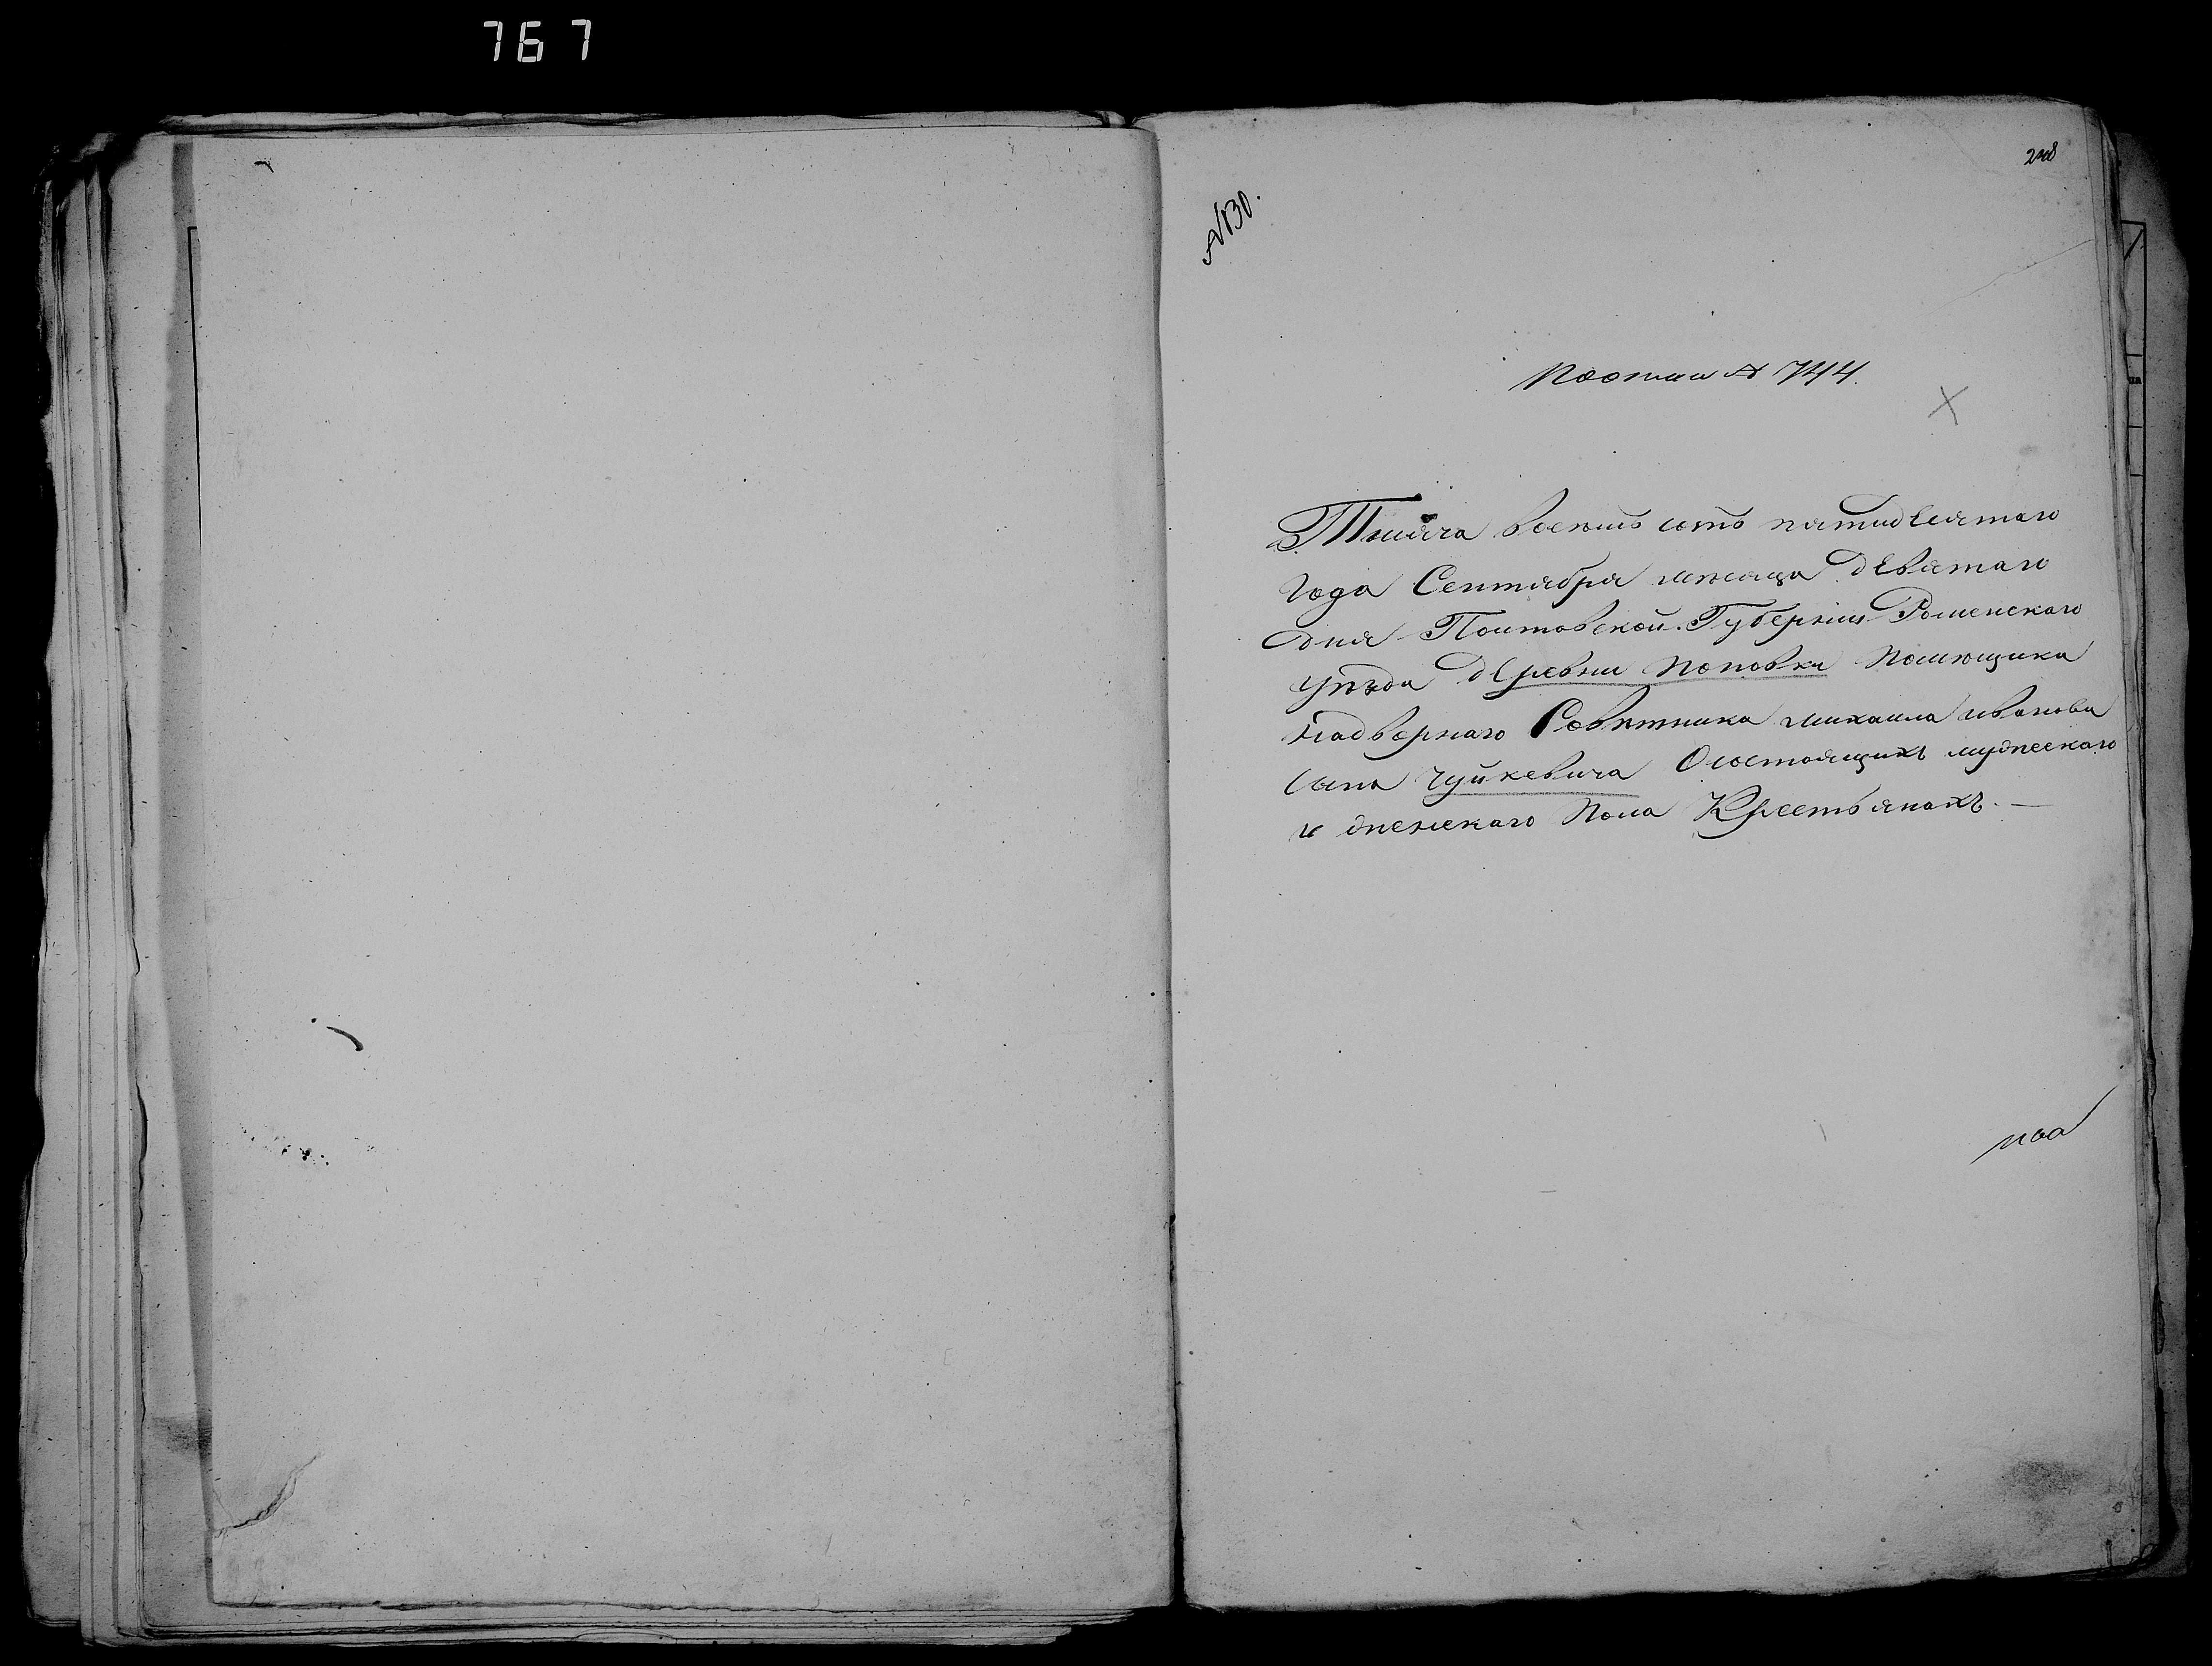 767
248
№130.
По описи № 744.
Тысяча восемь сотъ пятидесятаго
года Сентября месяца девятаго
дня Полтовской Губерніи Роменскаго
уезда деревни Поповки Помещика
надворнаго Советника михаила иванова
сына Чуйкевича О состоящихъ мужескаго
и женскаго Пола Крестьянахъ. —